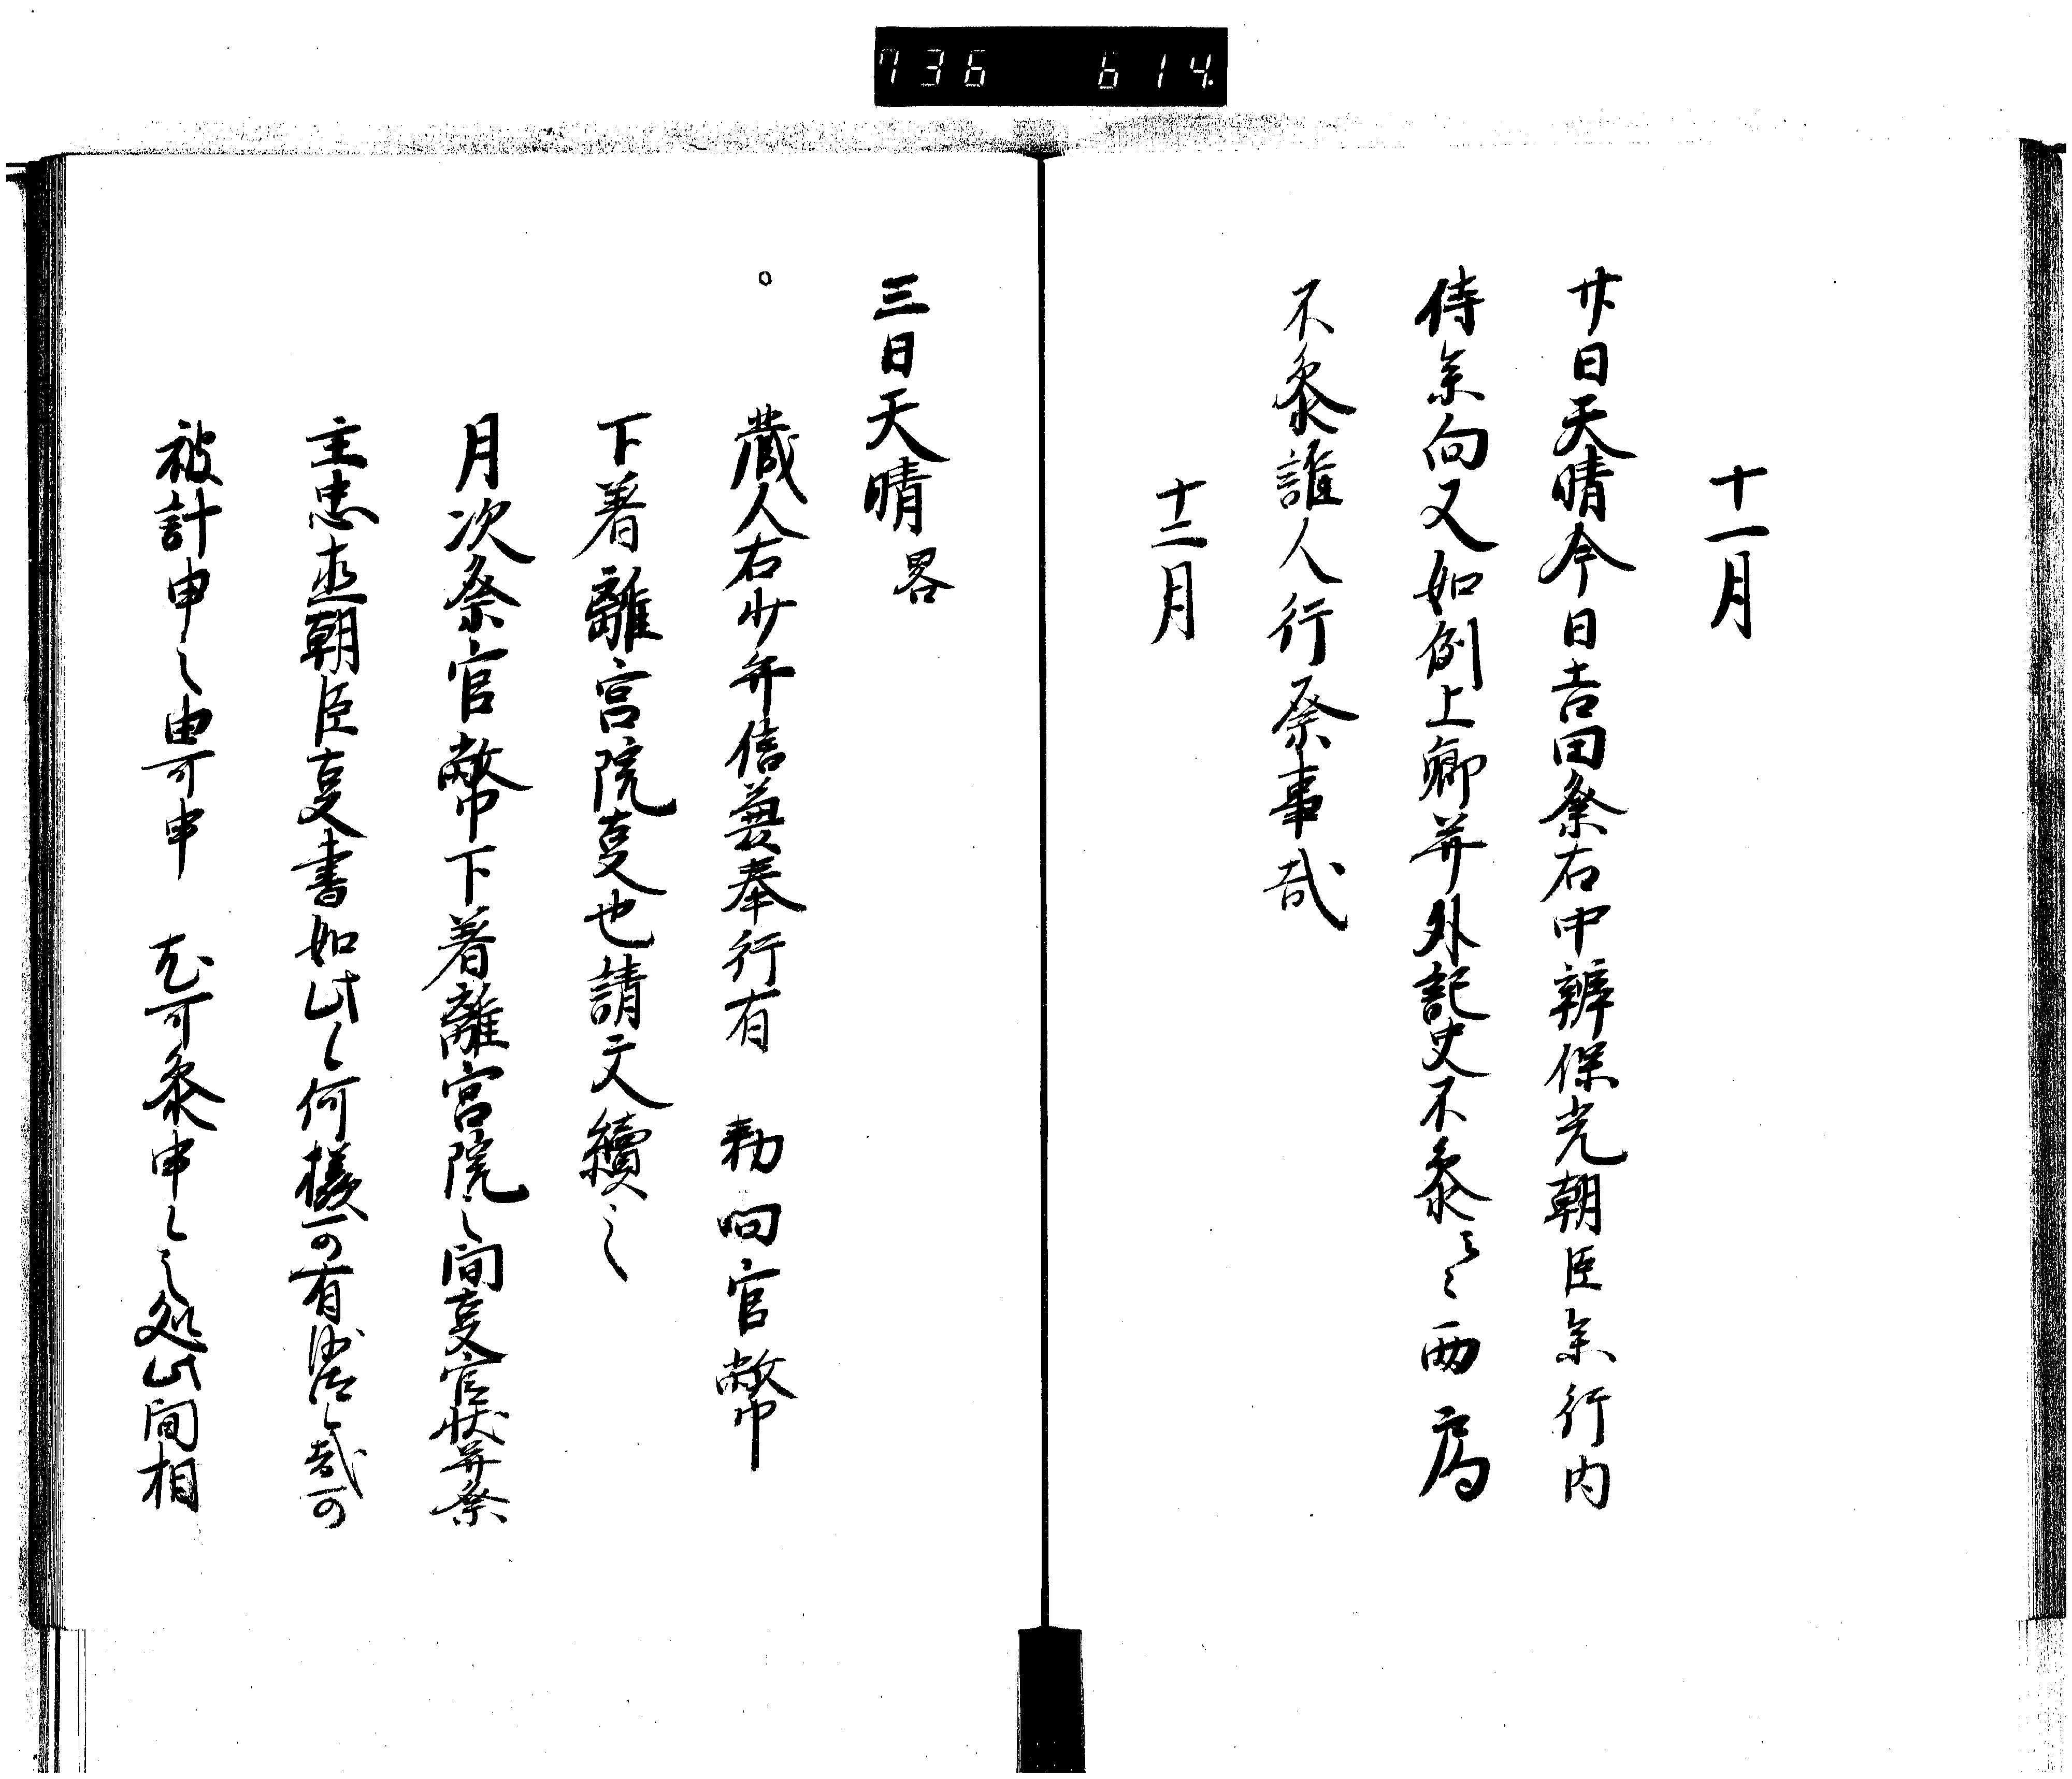 736 614
十一月
廿日天晴今日吉田祭右中辨保光朝臣参行内
侍参向又如例上卿并外記史不参云々両局
不参誰人行祭事哉
十二月
三日天晴畧
。蔵人右少弁信兼奉行有 勅問官幣
下着離宮院叓也請文續之
月次祭官幣下着離宮院之間叓官状并祭
主忠直朝臣叓書如此候何様可有沙汰候哉可
被計申之由可申 旨可参申候之処此間相